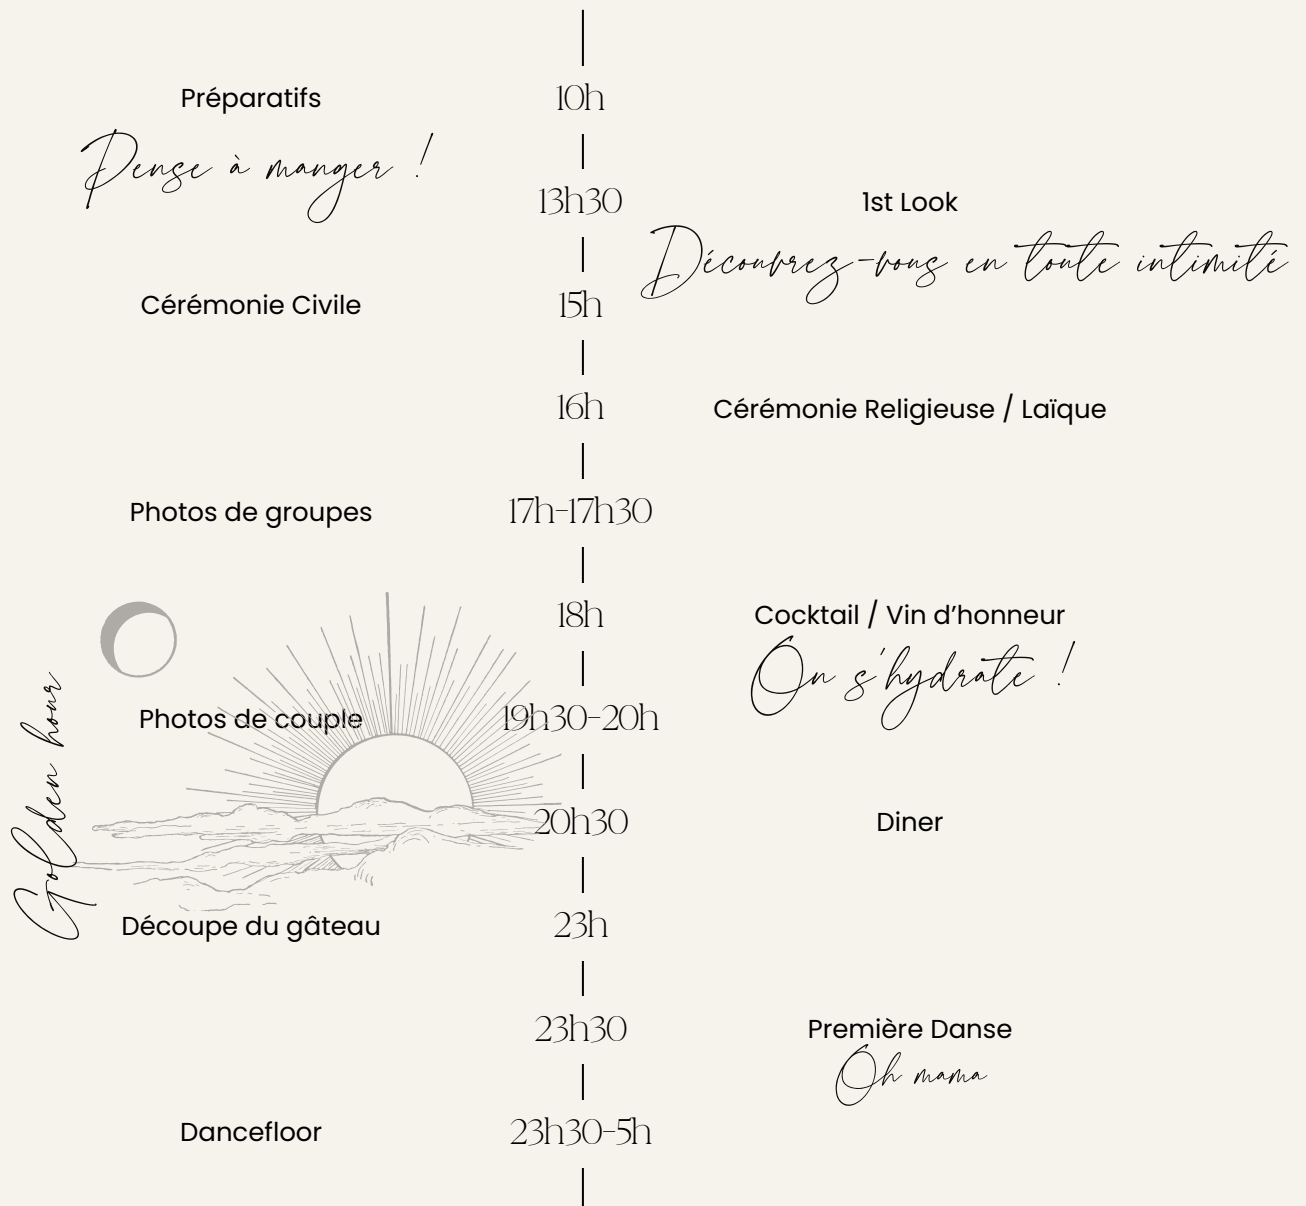 Préparatifs
10h
Pense à manger !
13h30
1st Look
Découvrez-vous en toute intimité
Cérémonie Civile
15h
16h
Cérémonie Religieuse / Laïque
Photos de groupes
17h-17h30
18h
Cocktail / Vin d’honneur
On s'hydrate !
Golden hour
Photos de couple
19h30-20h
20h30
Diner
Découpe du gâteau
23h
23h30
Première Danse
Oh mama
Dancefloor
23h30-5h